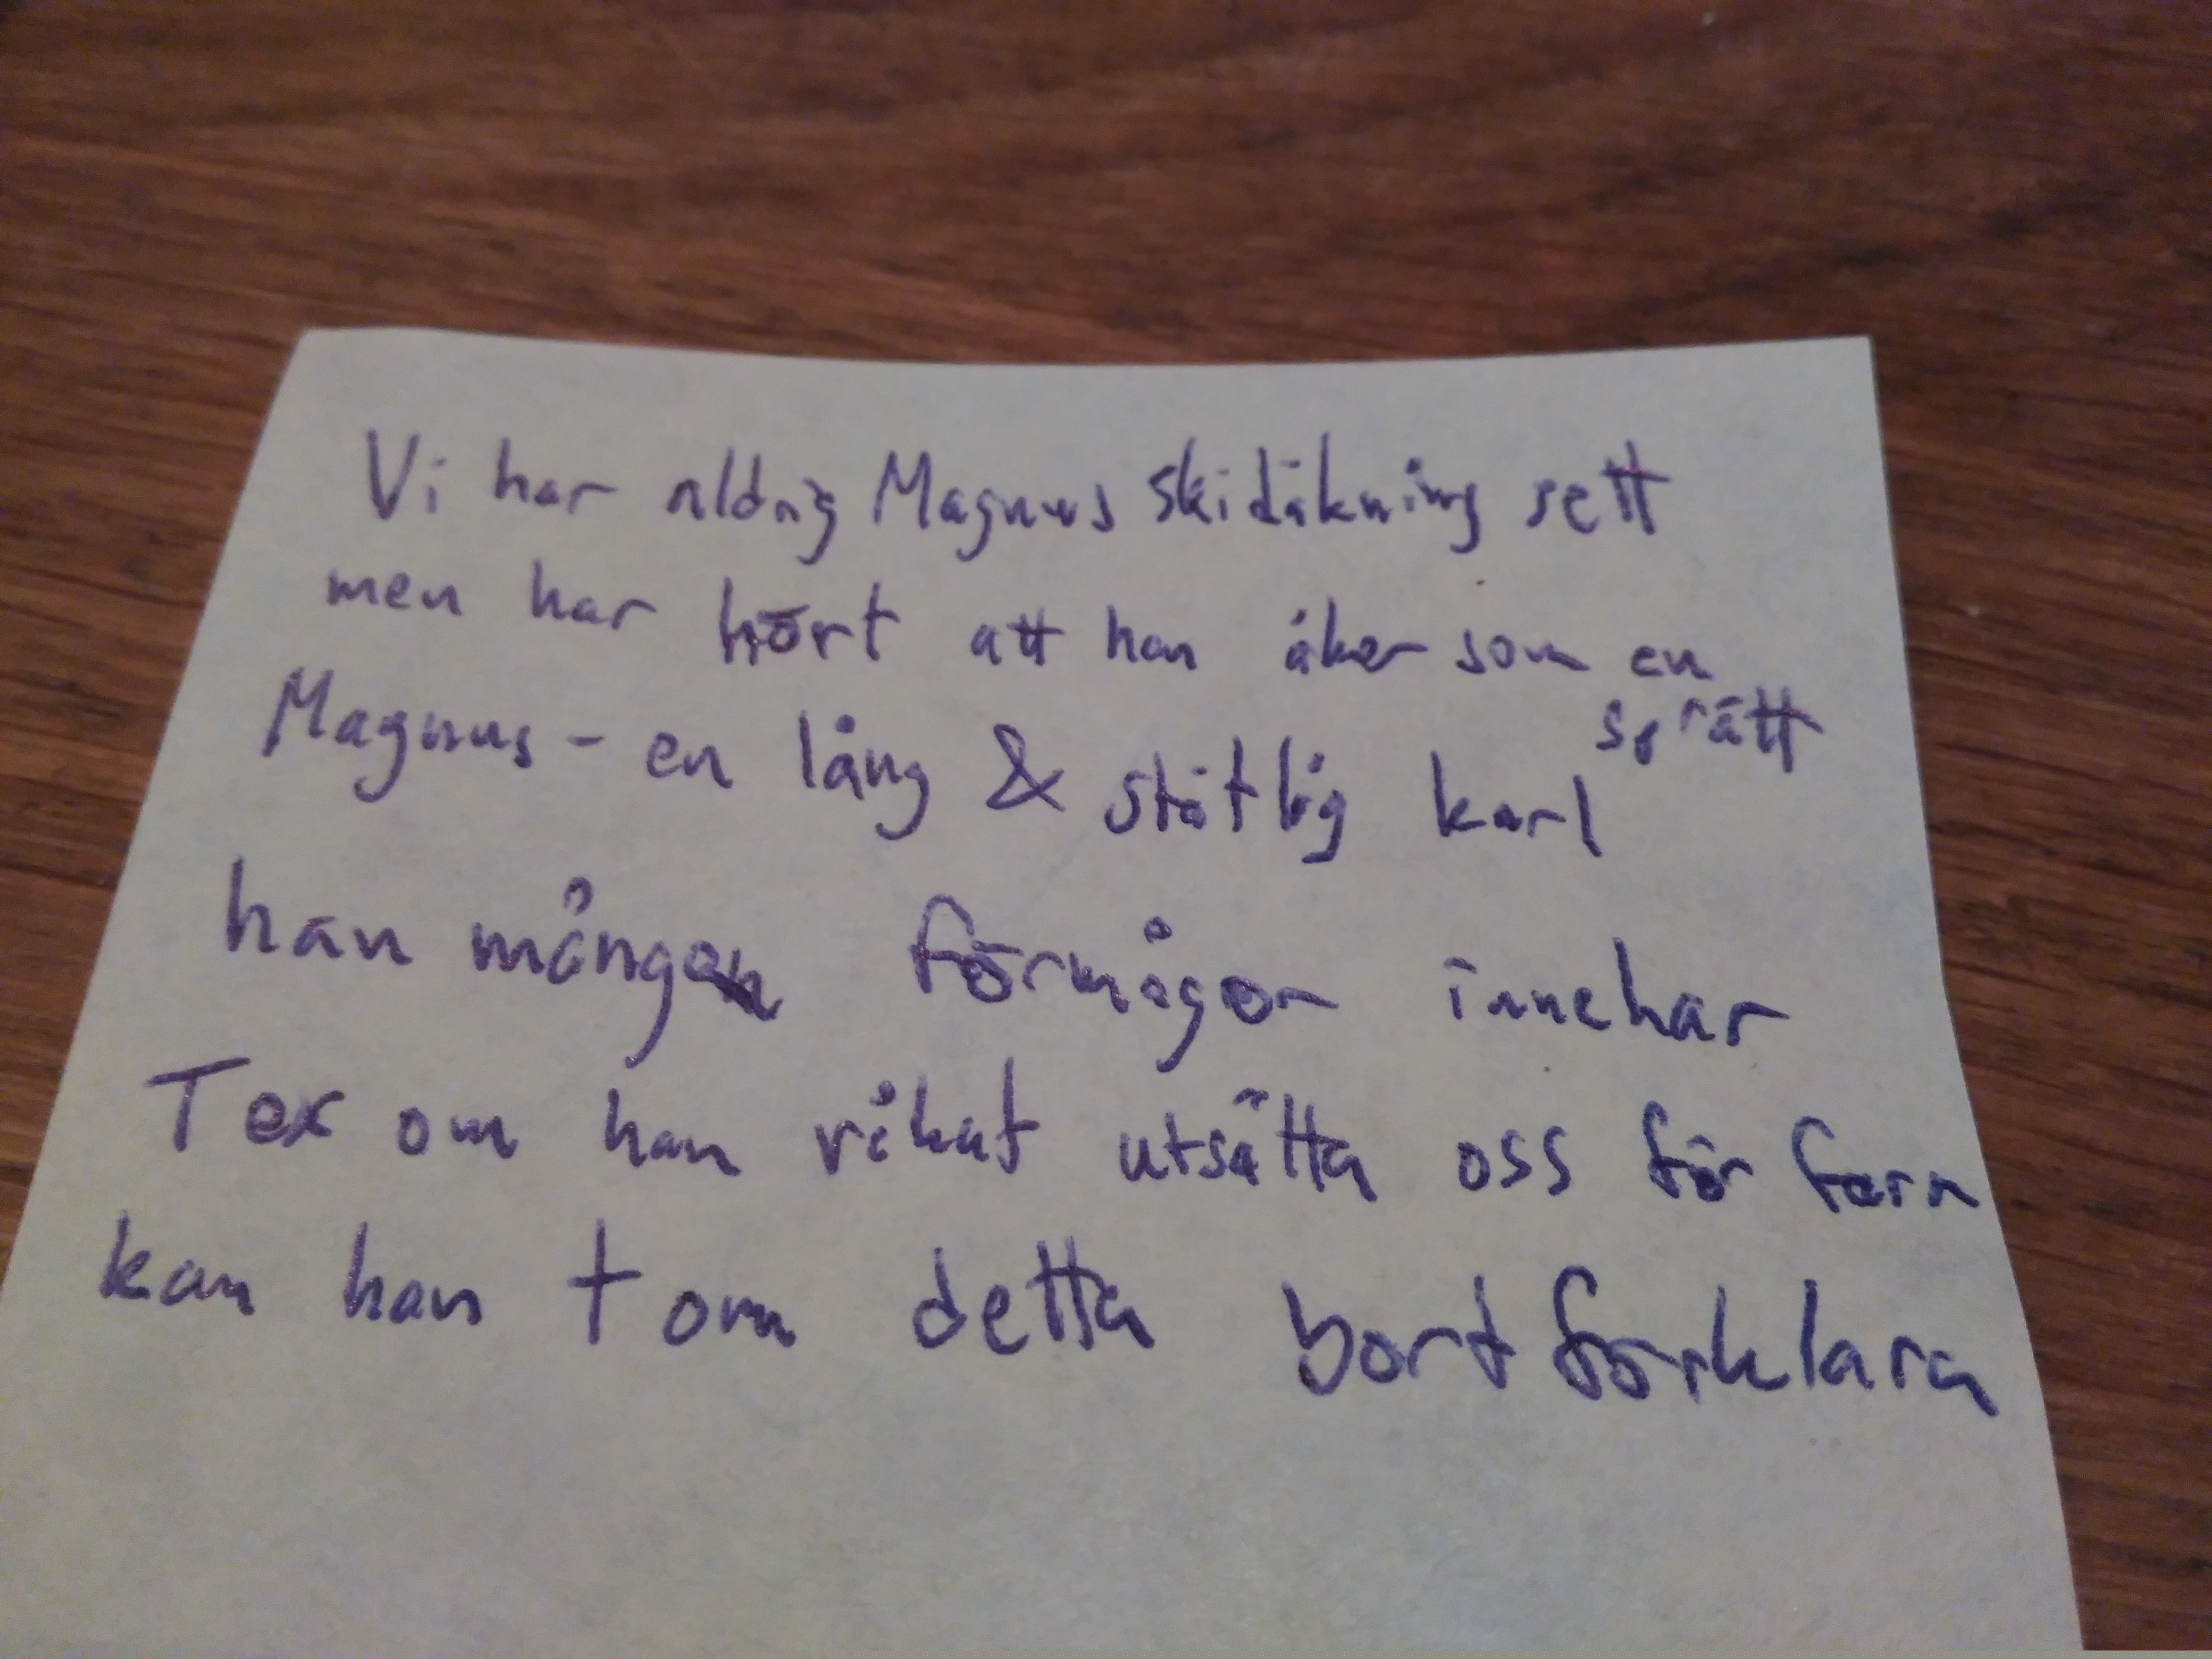 Vi har aldrig Magnus skidåkning sett
men har hört att han åker som en
sprätt
Magnus - en lång & ståtlig karl
han mången förmågor innehar
Tex om han råkat utsätta oss för fara
kan han t om detta bortförklara